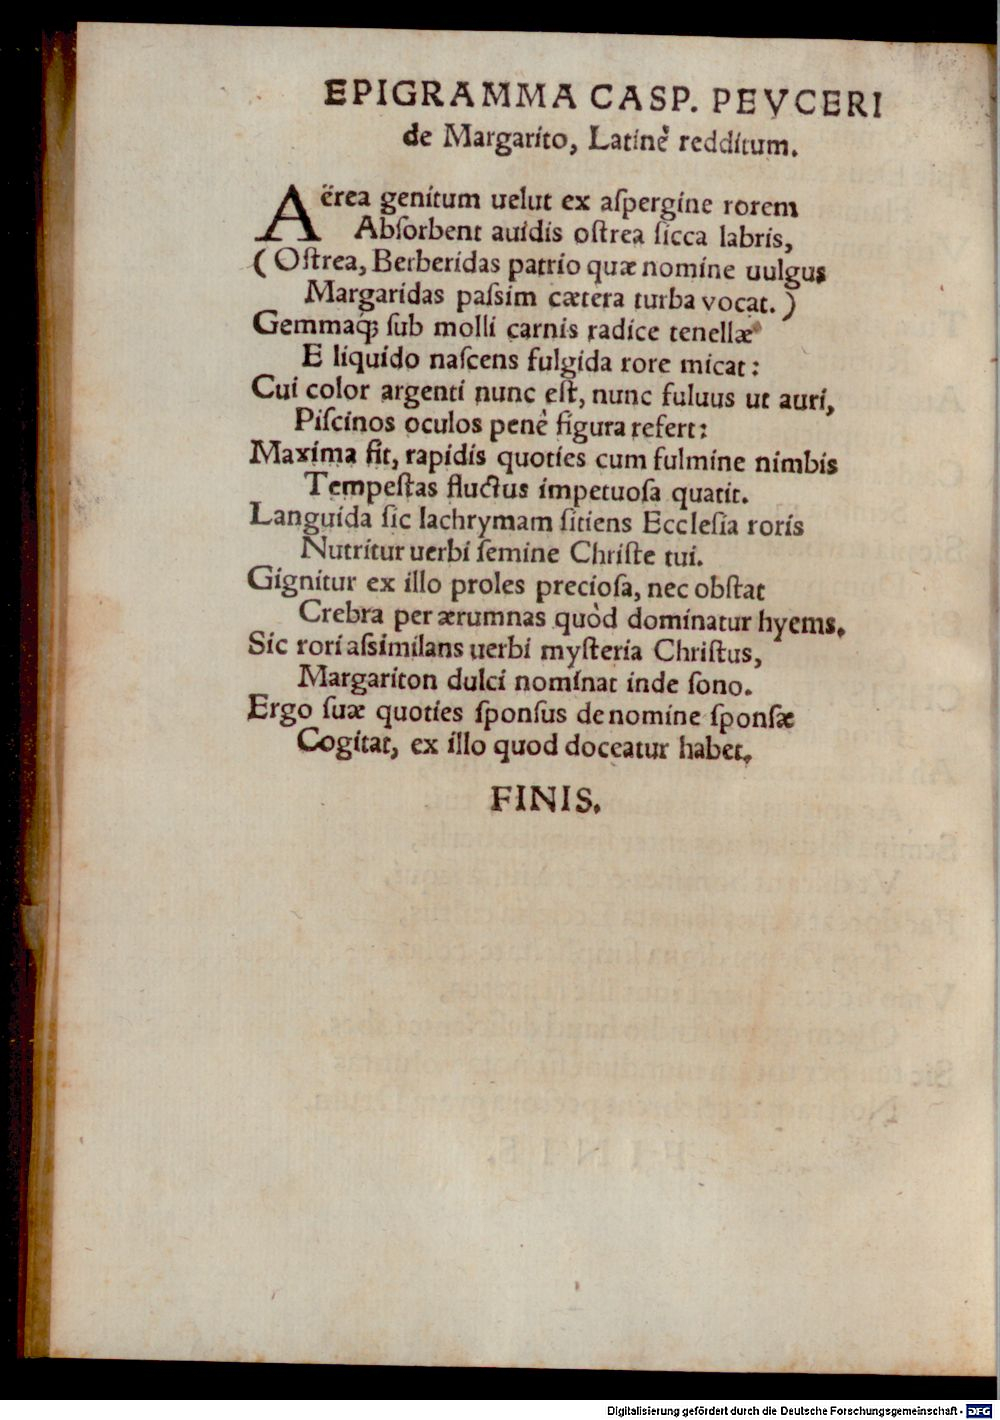 EPIGRAMMA CASP. PEVCERI
de Margarito, Latinè redditum.
Aërea genitum uelut ex aſpergine rorem
Abſorbent auidis oſtrea ſicca labris,
(Oſtrea, Berberidas patrio quæ nomine uulgus
Margaridas paſsim cætera turba vocat.)
Gemmaq́; ſub molli carnis radice tenellæ
E liquido naſcens fulgida rore micat:
Cui color argenti nunc eſt, nunc fuluus ut auri,
Piſcinos oculos penè figura refert:
Maxima fit, rapidis quoties cum fulmine nimbis
Tempeſtas fluctus impetuoſa quatit.
Languida ſic lachrymam ſitiens Eccleſia roris
Nutritur uerbi ſemine Chriſte tui.
Gignitur ex illo proles precioſa, nec obſtat
Crebra per ærumnas quòd dominatur hyems.
Sic rori aſsimilans uerbi myſteria Chriſtus,
Margariton dulci nominat inde ſono.
Ergo ſuæ quoties ſponſus de nomine ſponſæ
Cogitat, ex illo quod doceatur habet.
FINIS.
Digitalisierung gefördert durch die Deutsche Forschungsgemeinschaft - DFG